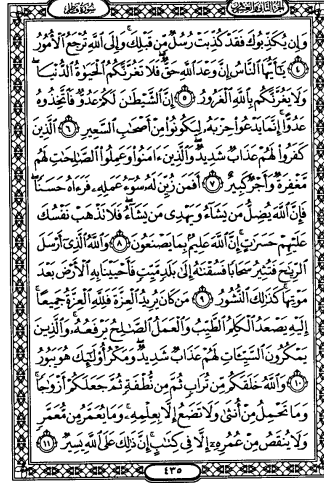 الجزء الثاني والعشرون سورة فاطر
وَإِن يُكَذِّبُوكَ فَقَدْ كُذِّبَتْ رُسُلٌ مِّن قَبْلِكَ ۚ وَإِلَى ٱللَّهِ تُرْجَعُ ٱلْأُمُورُ
۝٤ يَٰٓأَيُّهَا ٱلنَّاسُ إِنَّ وَعْدَ ٱللَّهِ حَقٌّ ۖ فَلَا تَغُرَّنَّكُمُ ٱلْحَيَوٰةُ ٱلدُّنْيَا ۖ
وَلَا يَغُرَّنَّكُم بِٱللَّهِ ٱلْغَرُورُ ۝٥ إِنَّ ٱلشَّيْطَٰنَ لَكُمْ عَدُوٌّ فَٱتَّخِذُوهُ
عَدُوًّا ۚ إِنَّمَا يَدْعُوا۟ حِزْبَهُۥ لِيَكُونُوا۟ مِنْ أَصْحَٰبِ ٱلسَّعِيرِ ۝٦ ٱلَّذِينَ
كَفَرُوا۟ لَهُمْ عَذَابٌ شَدِيدٌ ۖ وَٱلَّذِينَ ءَامَنُوا۟ وَعَمِلُوا۟ ٱلصَّٰلِحَٰتِ لَهُم
مَّغْفِرَةٌ وَأَجْرٌ كَبِيرٌ ۝٧ أَفَمَن زُيِّنَ لَهُۥ سُوٓءُ عَمَلِهِۦ فَرَءَاهُ حَسَنًا ۖ
فَإِنَّ ٱللَّهَ يُضِلُّ مَن يَشَآءُ وَيَهْدِى مَن يَشَآءُ ۖ فَلَا تَذْهَبْ نَفْسُكَ
عَلَيْهِمْ حَسَرَٰتٍ ۚ إِنَّ ٱللَّهَ عَلِيمٌۢ بِمَا يَصْنَعُونَ ۝٨ وَٱللَّهُ ٱلَّذِىٓ أَرْسَلَ
ٱلرِّيَٰحَ فَتُثِيرُ سَحَابًا فَسُقْنَٰهُ إِلَىٰ بَلَدٍ مَّيِّتٍ فَأَحْيَيْنَا بِهِ ٱلْأَرْضَ بَعْدَ
مَوْتِهَا ۚ كَذَٰلِكَ ٱلنُّشُورُ ۝٩ مَن كَانَ يُرِيدُ ٱلْعِزَّةَ فَلِلَّهِ ٱلْعِزَّةُ جَمِيعًا ۚ
إِلَيْهِ يَصْعَدُ ٱلْكَلِمُ ٱلطَّيِّبُ وَٱلْعَمَلُ ٱلصَّٰلِحُ يَرْفَعُهُۥ ۚ وَٱلَّذِينَ
يَمْكُرُونَ ٱلسَّيِّـَٔاتِ لَهُمْ عَذَابٌ شَدِيدٌ ۖ وَمَكْرُ أُو۟لَٰٓئِكَ هُوَ يَبُورُ
۝١٠ وَٱللَّهُ خَلَقَكُم مِّن تُرَابٍ ثُمَّ مِن نُّطْفَةٍ ثُمَّ جَعَلَكُمْ أَزْوَٰجًا ۚ
وَمَا تَحْمِلُ مِنْ أُنثَىٰ وَلَا تَضَعُ إِلَّا بِعِلْمِهِۦ ۚ وَمَا يُعَمَّرُ مِن مُّعَمَّرٍ
وَلَا يُنقَصُ مِنْ عُمُرِهِۦٓ إِلَّا فِى كِتَٰبٍ ۚ إِنَّ ذَٰلِكَ عَلَى ٱللَّهِ يَسِيرٌ ۝١١
٤٣٥